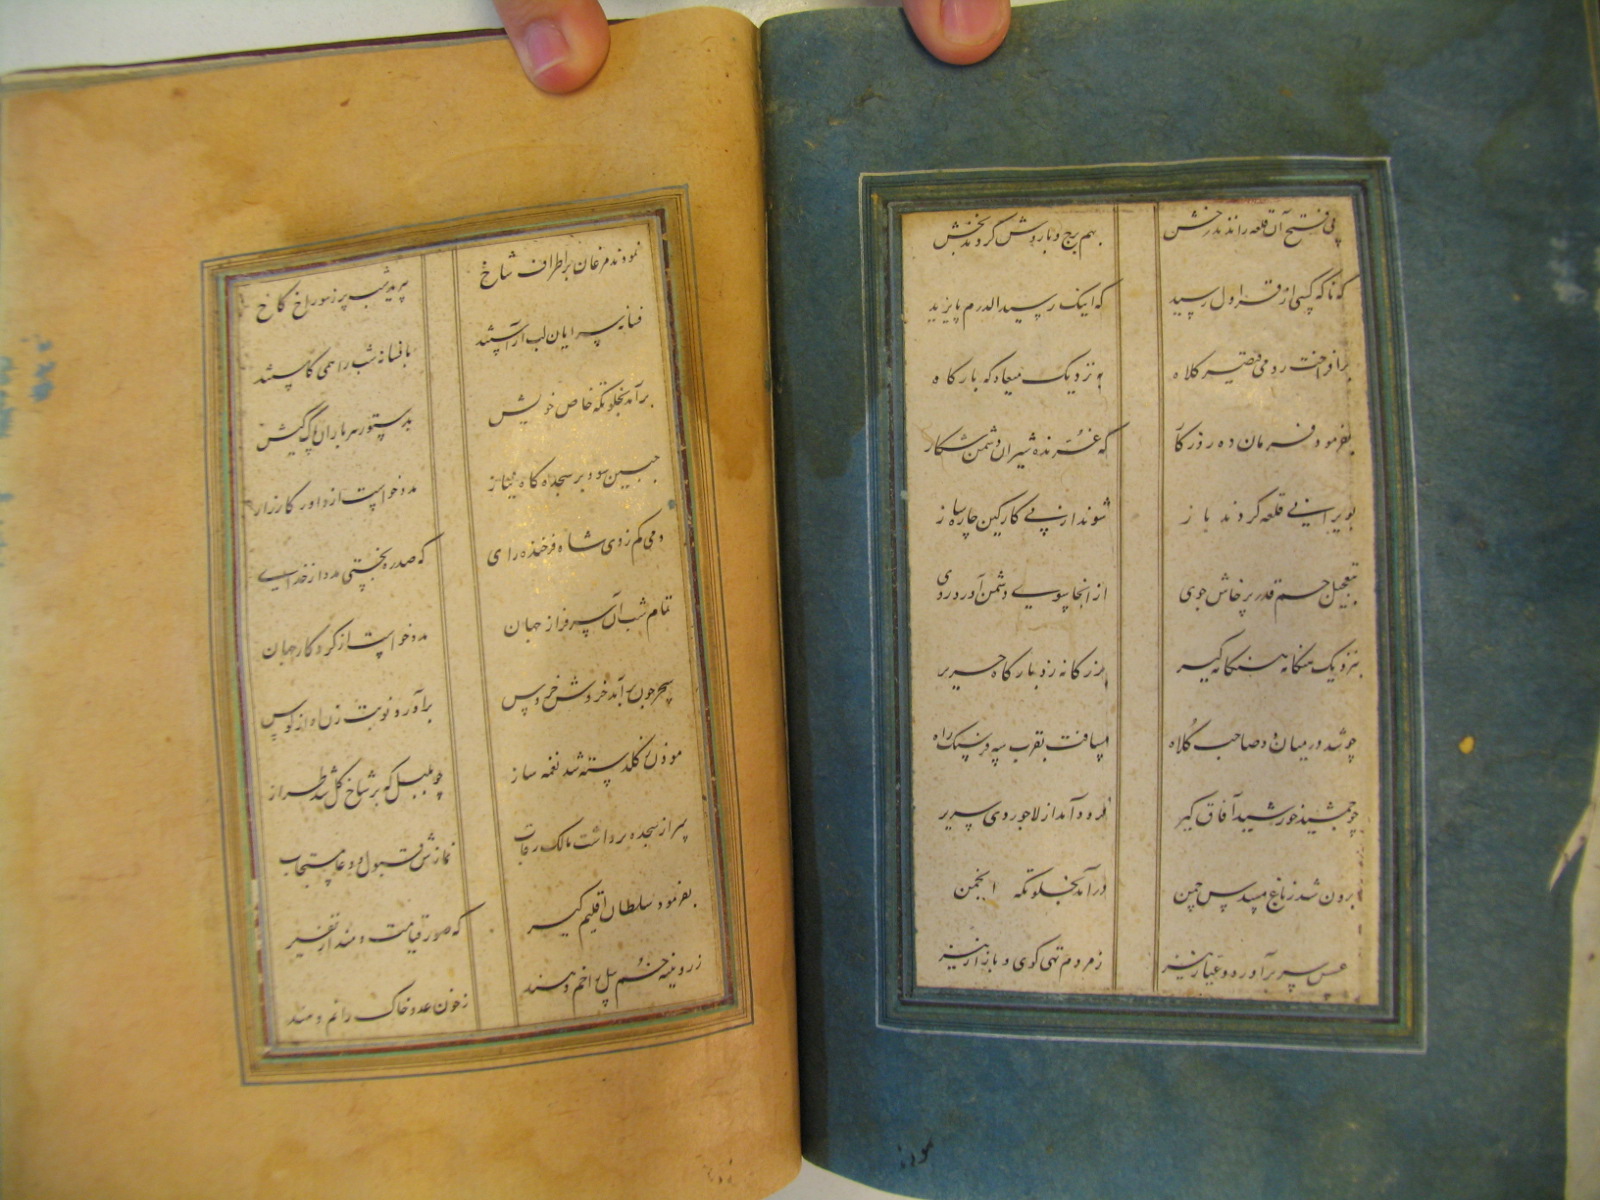 پی فتح آن قلعه راندند رخش بهم برج و باروش کردند بخش
که ناگه کسی از قراول رسید که اینک رسید الدرم بایزید
برافراخت رومی قیصر کلاه به نزدیک میعادگه بارگاه
بفرمود فرمان ده روزگار که غرنده شیران دشمن شکار
بویرانی قلعه کردند باز شوند از پی کار کین چاره ساز
بتعجیل جم قدر پرخاش جوی از آنجا بسوی دشمن آورد روی
بنزدیک هنگامه هنگامه گیر بزرگانه زد بارگاه حریر
چو شد در میان دو صاحب کلاه مسافت بقرب سه فرسنگ راه
چو جمشید خورشید آفاق گیر فرود آمد از لاجوردی سریر
برون شد ز باغ سپس چمن درآمد بخلوتگه انجمن
عسس سر برآورد و عیار نیز ز مردم تهی کوی و بازار نیز
نمودند مرغان بر اطراف شاخ پریدند شب پر ز سوراخ کاخ
فسانه سرایان لب آراستند بافسانه شب را همی کاستند
برآمد بخلوتگه خاص خویش بدستور هر بار آن پاک کیش
جبین سود بر سجده گاه نیاز مدد خواست از داور کارزار
دمی کم زدی شاه فرخنده رای که صدره بجستی مدد از خدای
تمام شب آن سرفراز جهان مدد خواست از کردگار جهان
سحر چون برآمد خروش خروس برآورد نوبت زن آواز کوس
موذن بگلدسته شد نغمه ساز چو بلبل که بر شاخ گل شد طراز
سر از سجده برداشت مالک رقاب نمازش قبول و دعا مستجاب
بفرمود سلطان اقلیم گیر که صور قیامت دمند از نفیر
ز رویینه خم پیل را خم دهند ز خون عدو خاک را نم دهند
نمودند